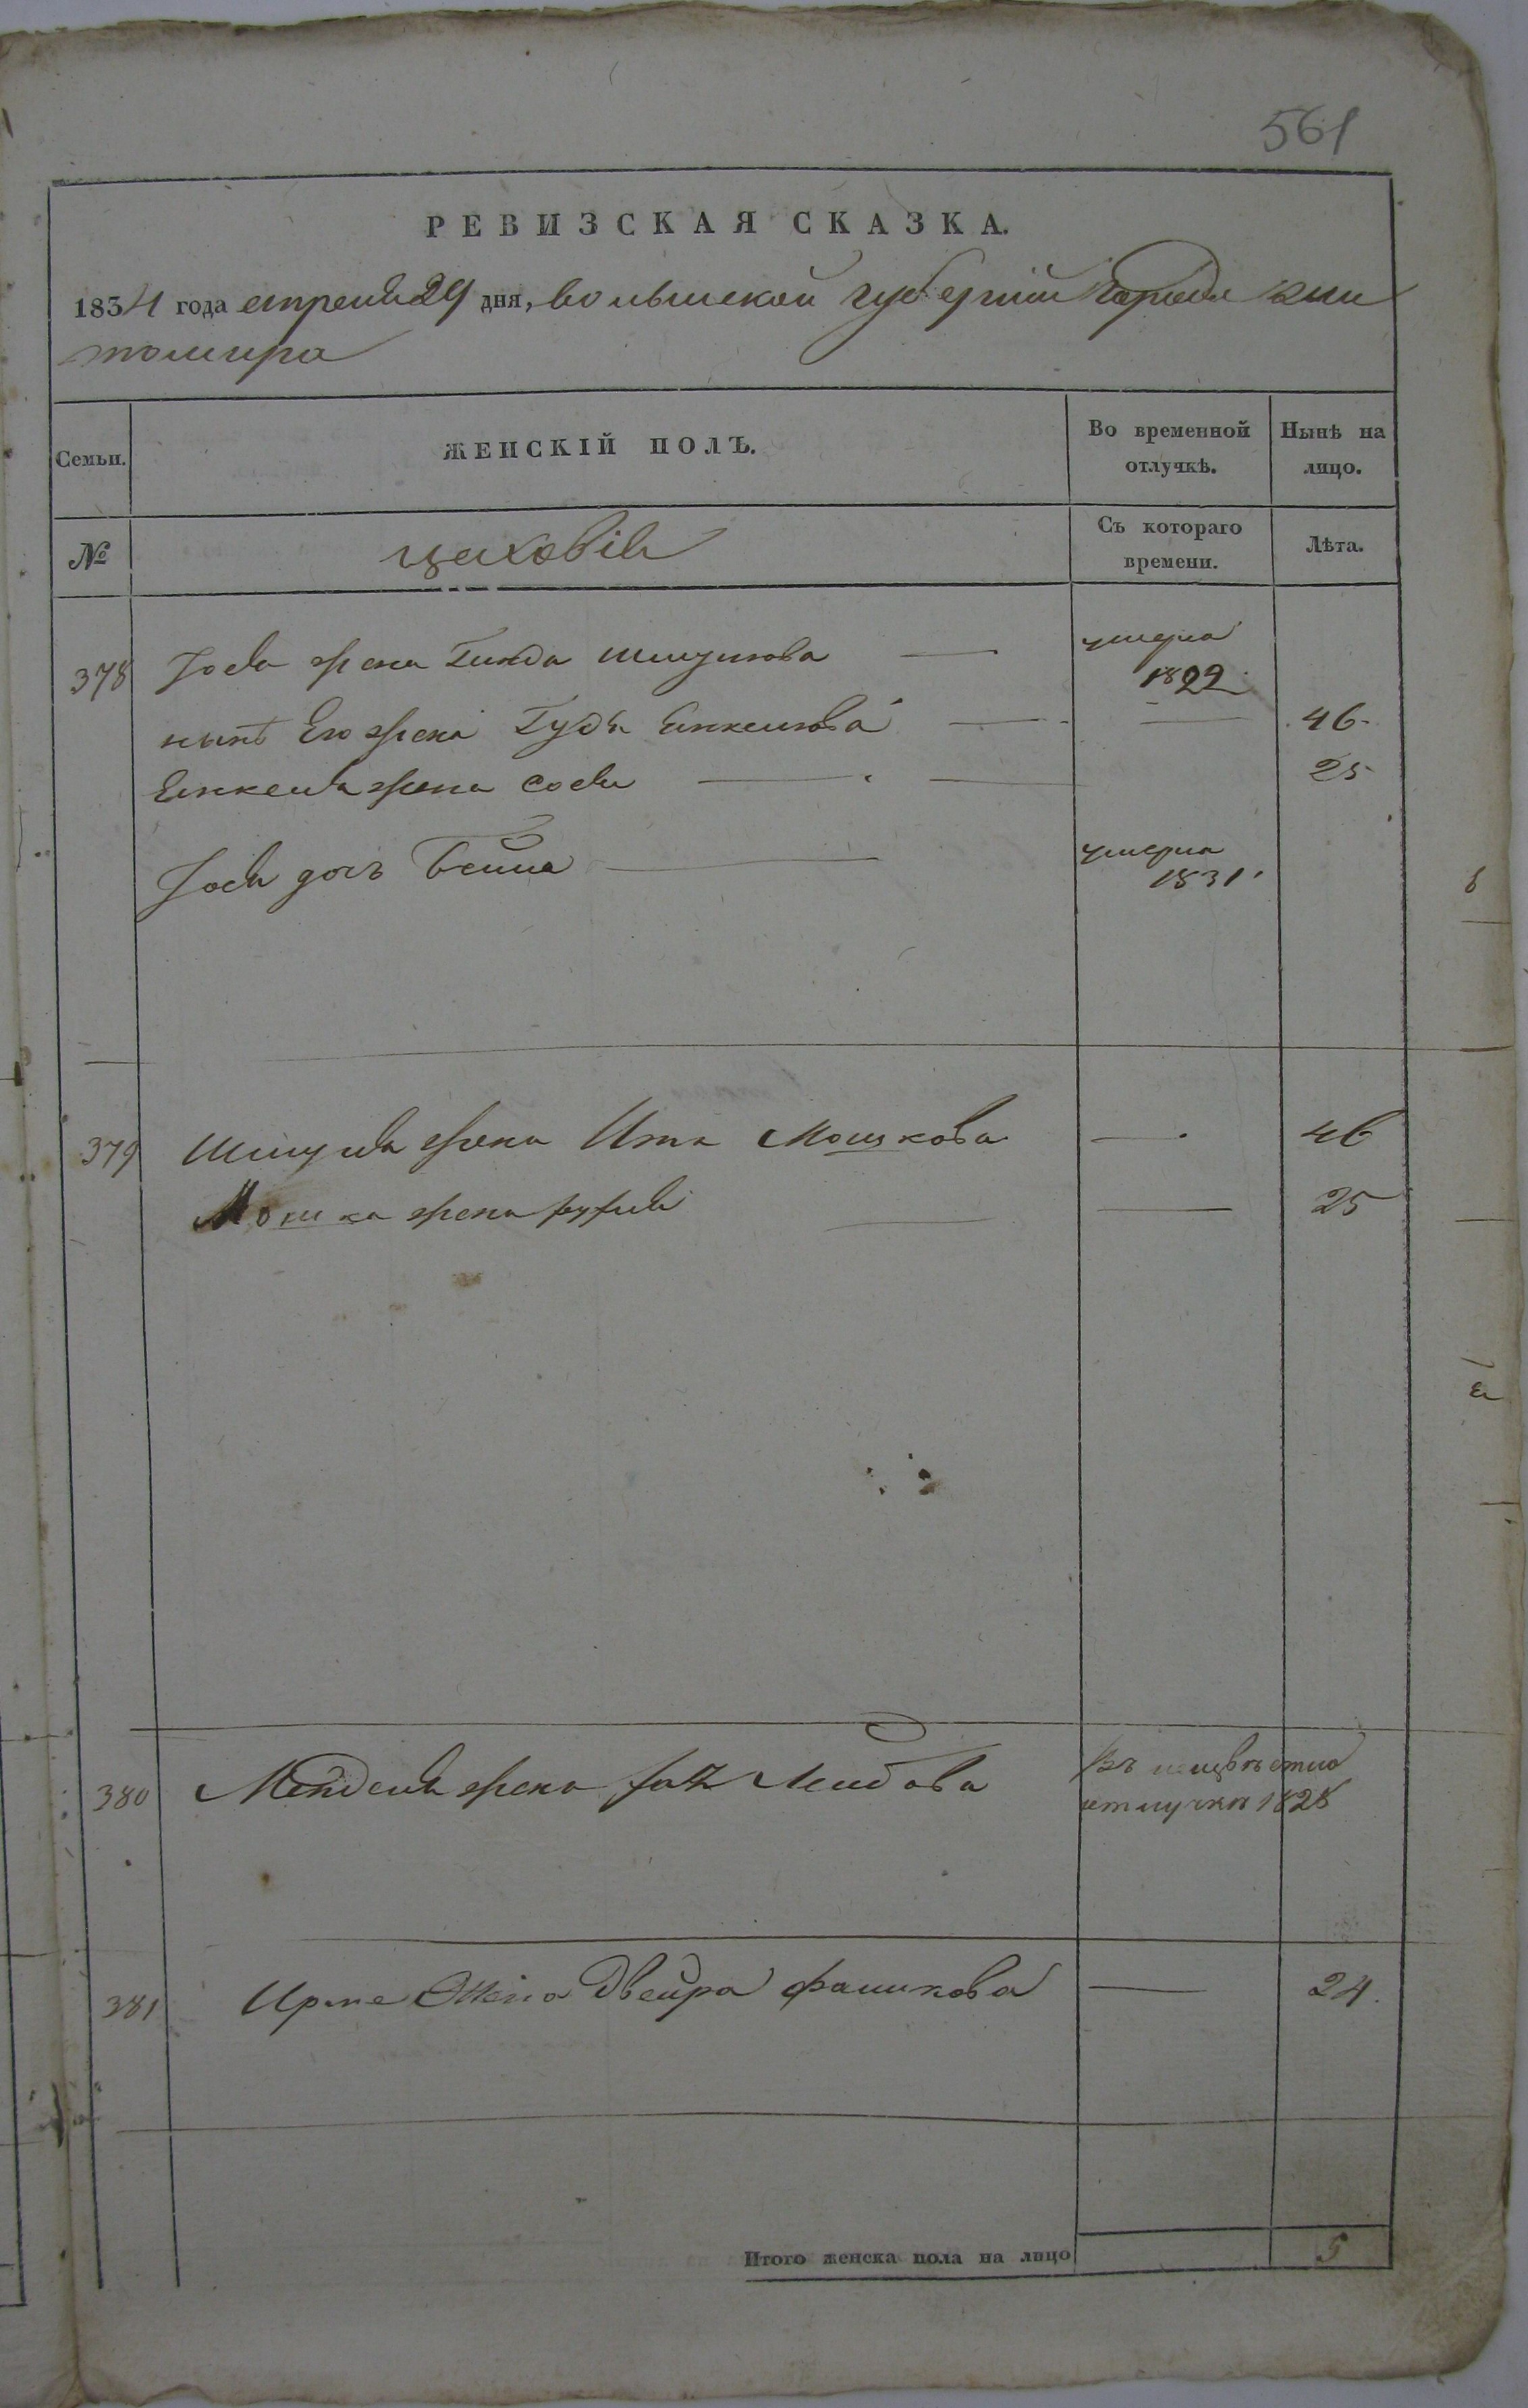 561
РЕВИЗСКАЯ СКАЗКА.
1834 года апреля 29 дня, волынской губернии города жи
томира
Семьи.
ЖЕНСКІЙ ПОЛЪ.
Во временной отлучкѣ.
Нынѣ на лицо.
№
цеховіи
Съ котораго времени.
Лѣта.
378 жена Шмулова — умерла 1822
нынѣ Его жена — — 46
жена Сося — 25
дочь Бейла — умерла 1831
379 Шмуля жена Ита Мошкова — 46
Мошка жена — — 25
380 Менделя жена Лейбова Въ неизвѣстно отлучки 1828
381 жена Двейра — 24.
Итого женска пола на лицо 5